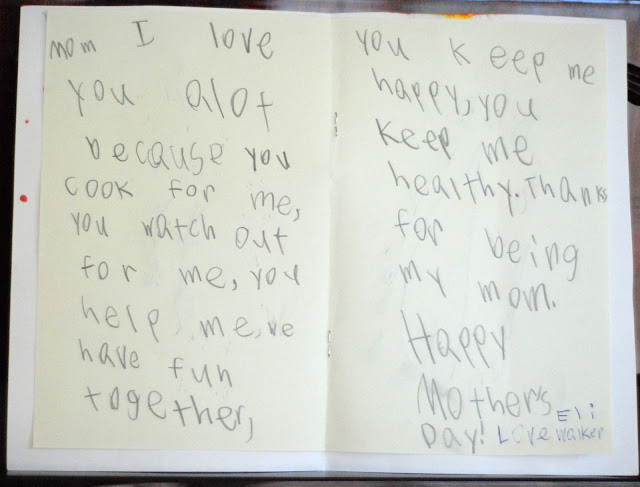 mom I love
you alot
because you
cook for me,
you watch out
for me, you
help me, we
have fun
together,
you keep me
happy, you
keep me
healthy. Thanks
for being
my mom.
Happy
Mother's
Day! Love Eli
Walker